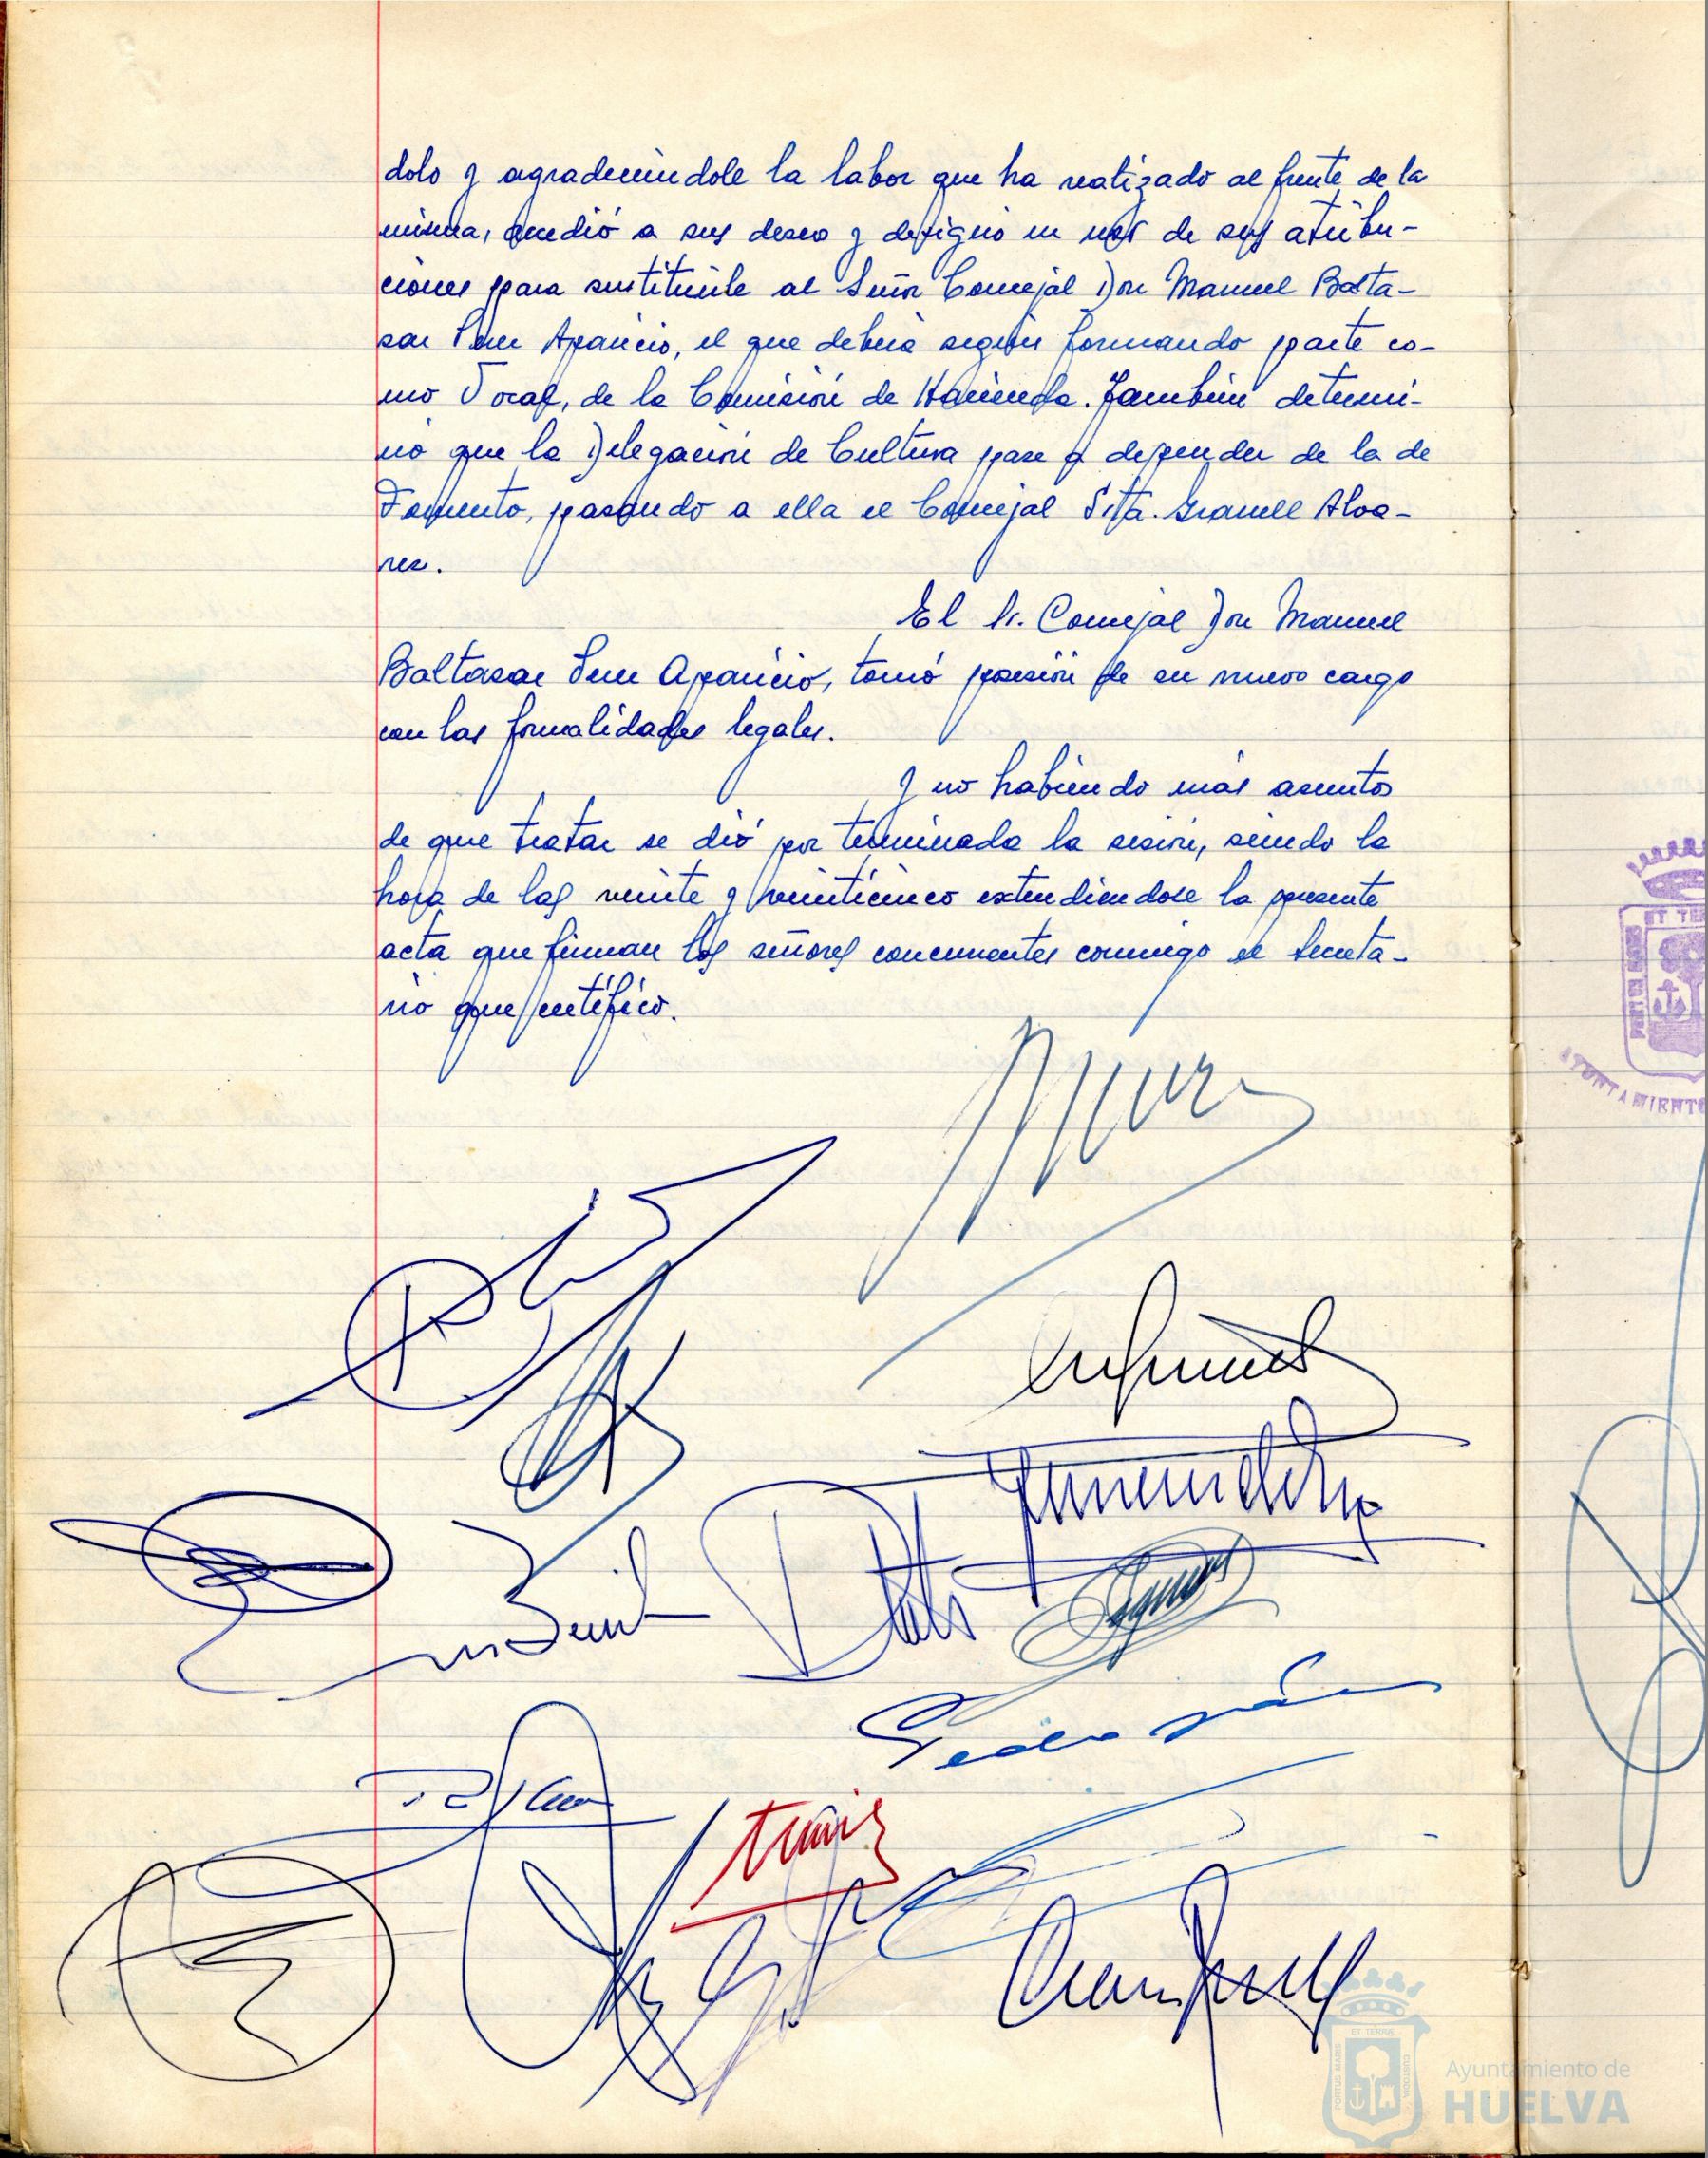 dolo y agradeciéndole la labor que ha realizado al frente de la
misma, accedió a sus deseos y designó en uso de sus atribu-
ciones para sustituirle al Señor Concejal Don Manuel Balta-
sar Aparicio, el que deberá seguir formando parte co-
mo Vocal, de la Comisión de Hacienda. También determi-
nó que la Delegación de Cultura pase a depender de la de
Fomento, pasando a ella el Concejal Srta. Granell Alva-
rez.
El Sr. Concejal Don Manuel
Baltasar Aparicio, tomó posesión de su nuevo cargo
con las formalidades legales.
Y no habiendo más asuntos
de que tratar se dió por terminada la sesión, siendo la
hora de las veinte y veinticinco extendiendose la presente
acta que firman los señores concurrentes conmigo el Secreta-
rio que certifico.
ET TE
PORTUS MARIS
AYUNTAMIENTO
ET TERRÆ
PORTUS MARIS
CUSTODIA
Ayuntamiento de
HUELVA